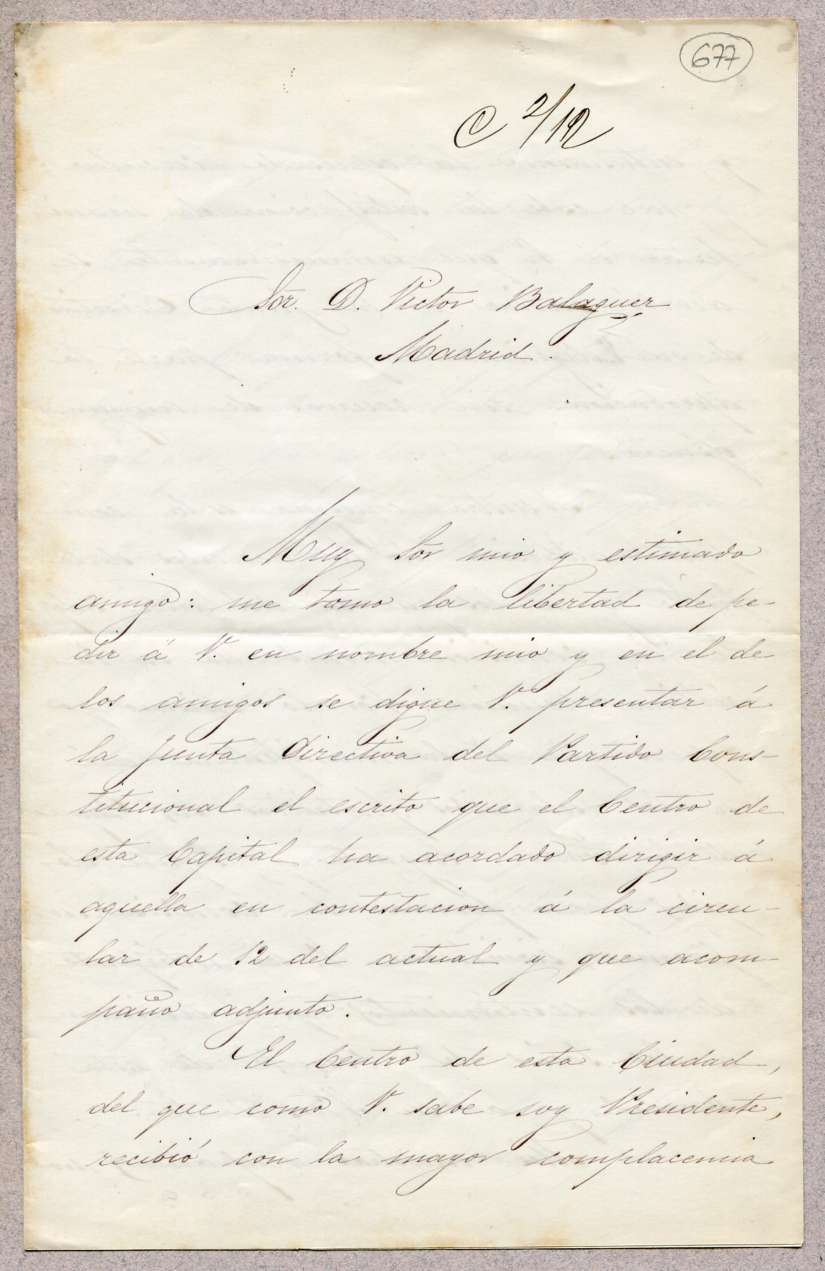 677
C 2/12
Sor. D. Victor Balaguer
Madrid.
Muy Sor mio y estimado
amigo: me tomo la libertad de pe-
dir á V. en nombre mio y en el de
los amigos se digne V. presentar á
la Junta Directiva del Partido Cons-
titucional el escrito que el Centro de
esta Capital ha acordado dirigir á
aquella en contestacion á la circu-
lar de 12 del actual y que acom-
paño adjunto.
El Centro de esta Ciudad,
del que como V. sabe soy Presidente,
recibió con la mayor complacencia